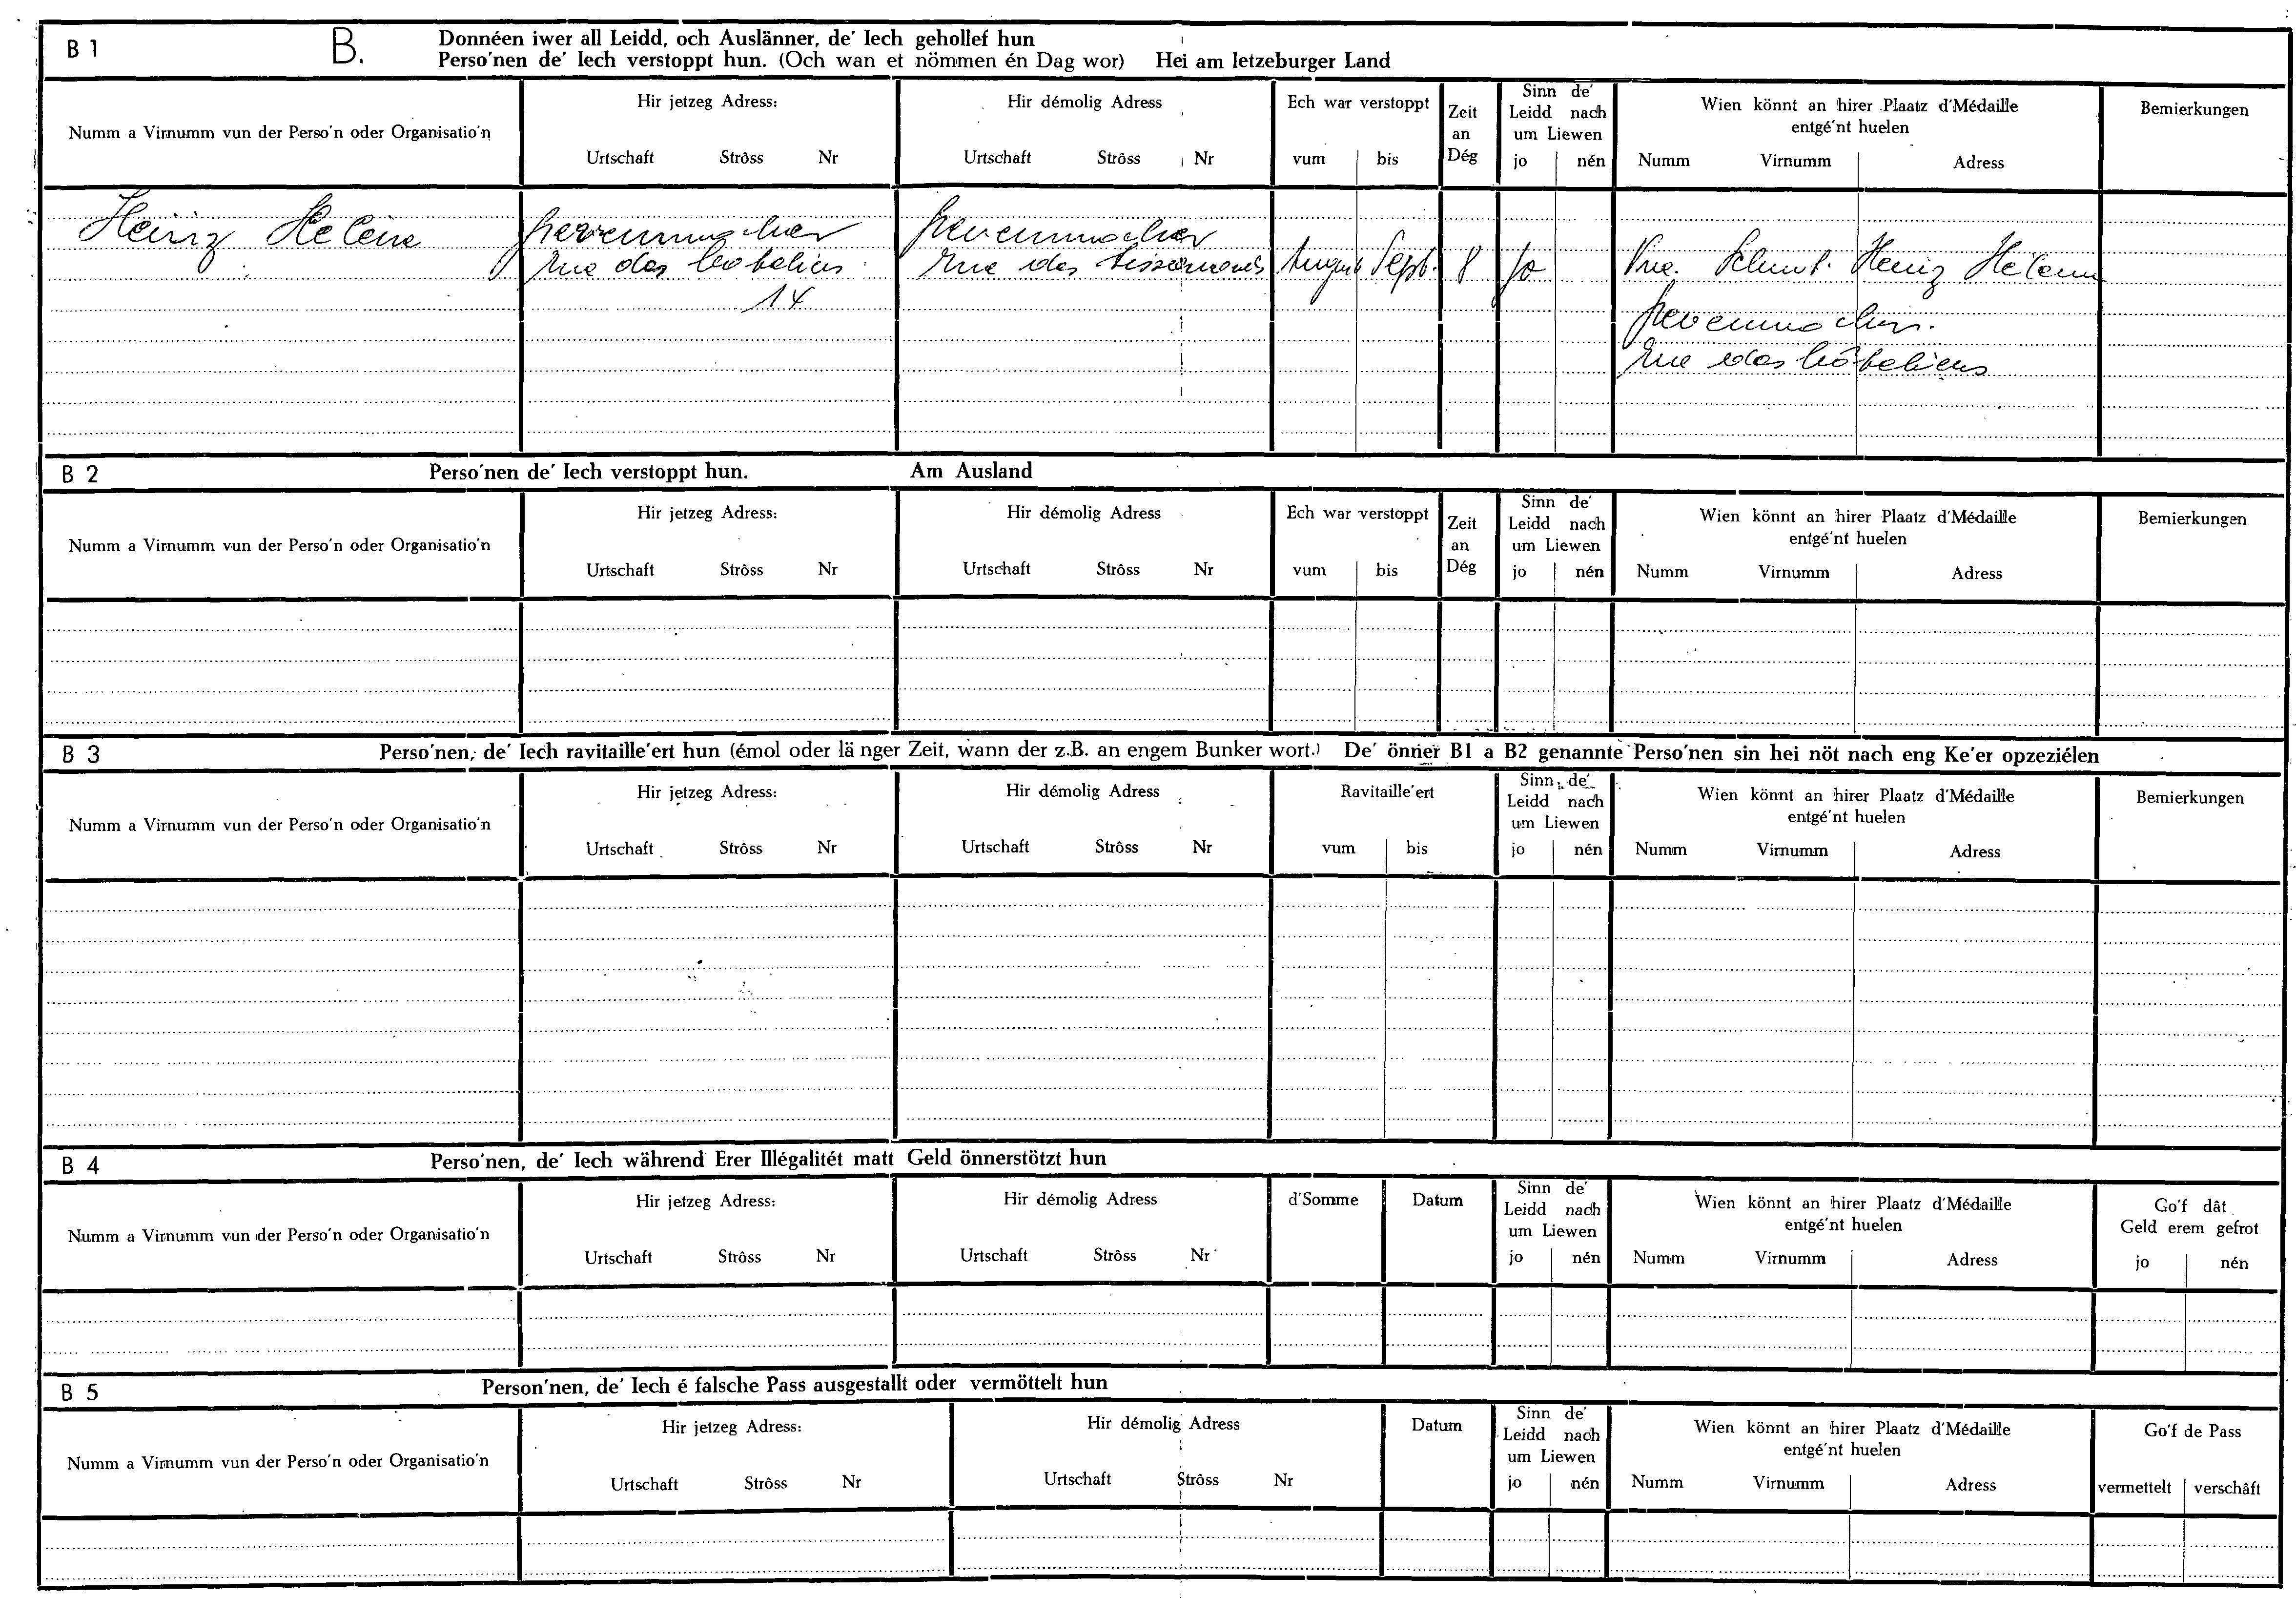 B 1 B. Donnéen iwer all Leidd, och Auslänner, de' Iech gehollef hun
Perso'nen de' Iech verstoppt hun. (Och wan et nömmen én Dag wor) Hei am letzeburger Land
Numm a Virnumm vun der Perso'n oder Organisatio'n
Hir jetzeg Adress:
Urtschaft Strôss Nr
Hir démolig Adress
Urtschaft Strôss Nr
Ech war verstoppt
vum bis
Zeit
an
Dég
Sinn de'
Leidd nach
um Liewen
jo nén
Wien könnt an hirer Plaatz d'Médaille
entgé'nt huelen
Numm Virnumm Adress
Bemierkungen
Heinz Helene
Grevenmacher
Rue des
14
Grevenmacher
Rue des
August Sept. 8 Jo
Vve. Heinz Helene
Grevenmacher.
Rue des
B 2 Perso'nen de' Iech verstoppt hun. Am Ausland
Numm a Virnumm vun der Perso'n oder Organisatio'n
Hir jetzeg Adress:
Urtschaft Strôss Nr
Hir démolig Adress
Urtschaft Strôss Nr
Ech war verstoppt
vum bis
Zeit
an
Dég
Sinn de'
Leidd nach
um Liewen
jo nén
Wien könnt an hirer Plaatz d'Médaille
entgé'nt huelen
Numm Virnumm Adress
Bemierkungen
B 3 Perso'nen, de' Iech ravitaille'ert hun (émol oder länger Zeit, wann der z.B. an engem Bunker wort.) De' önner B1 a B2 genannte Perso'nen sin hei nöt nach eng Ke'er opzeziélen
Numm a Virnumm vun der Perso'n oder Organisatio'n
Hir jetzeg Adress:
Urtschaft Strôss Nr
Hir démolig Adress
Urtschaft Strôss Nr
Ravitaille'ert
vum bis
Sinn de'
Leidd nach
um Liewen
jo nén
Wien könnt an hirer Plaatz d'Médaille
entgé'nt huelen
Numm Virnumm Adress
Bemierkungen
B 4 Perso'nen, de' Iech während Erer Illégalitét matt Geld önnerstötzt hun
Numm a Virnumm vun der Perso'n oder Organisatio'n
Hir jetzeg Adress:
Urtschaft Strôss Nr
Hir démolig Adress
Urtschaft Strôss Nr
d'Somme
Datum
Sinn de'
Leidd nach
um Liewen
jo nén
Wien könnt an hirer Plaatz d'Médaille
entgé'nt huelen
Numm Virnumm Adress
Go'f dât
Geld erem gefrot
jo nén
B 5 Person'nen, de' Iech é falsche Pass ausgestallt oder vermöttelt hun
Numm a Virnumm vun der Perso'n oder Organisatio'n
Hir jetzeg Adress:
Urtschaft Strôss Nr
Hir démolig Adress
Urtschaft Strôss Nr
Datum
Sinn de'
Leidd nach
um Liewen
jo nén
Wien könnt an hirer Plaatz d'Médaille
entgé'nt huelen
Numm Virnumm Adress
Go'f de Pass
vermettelt verschâft